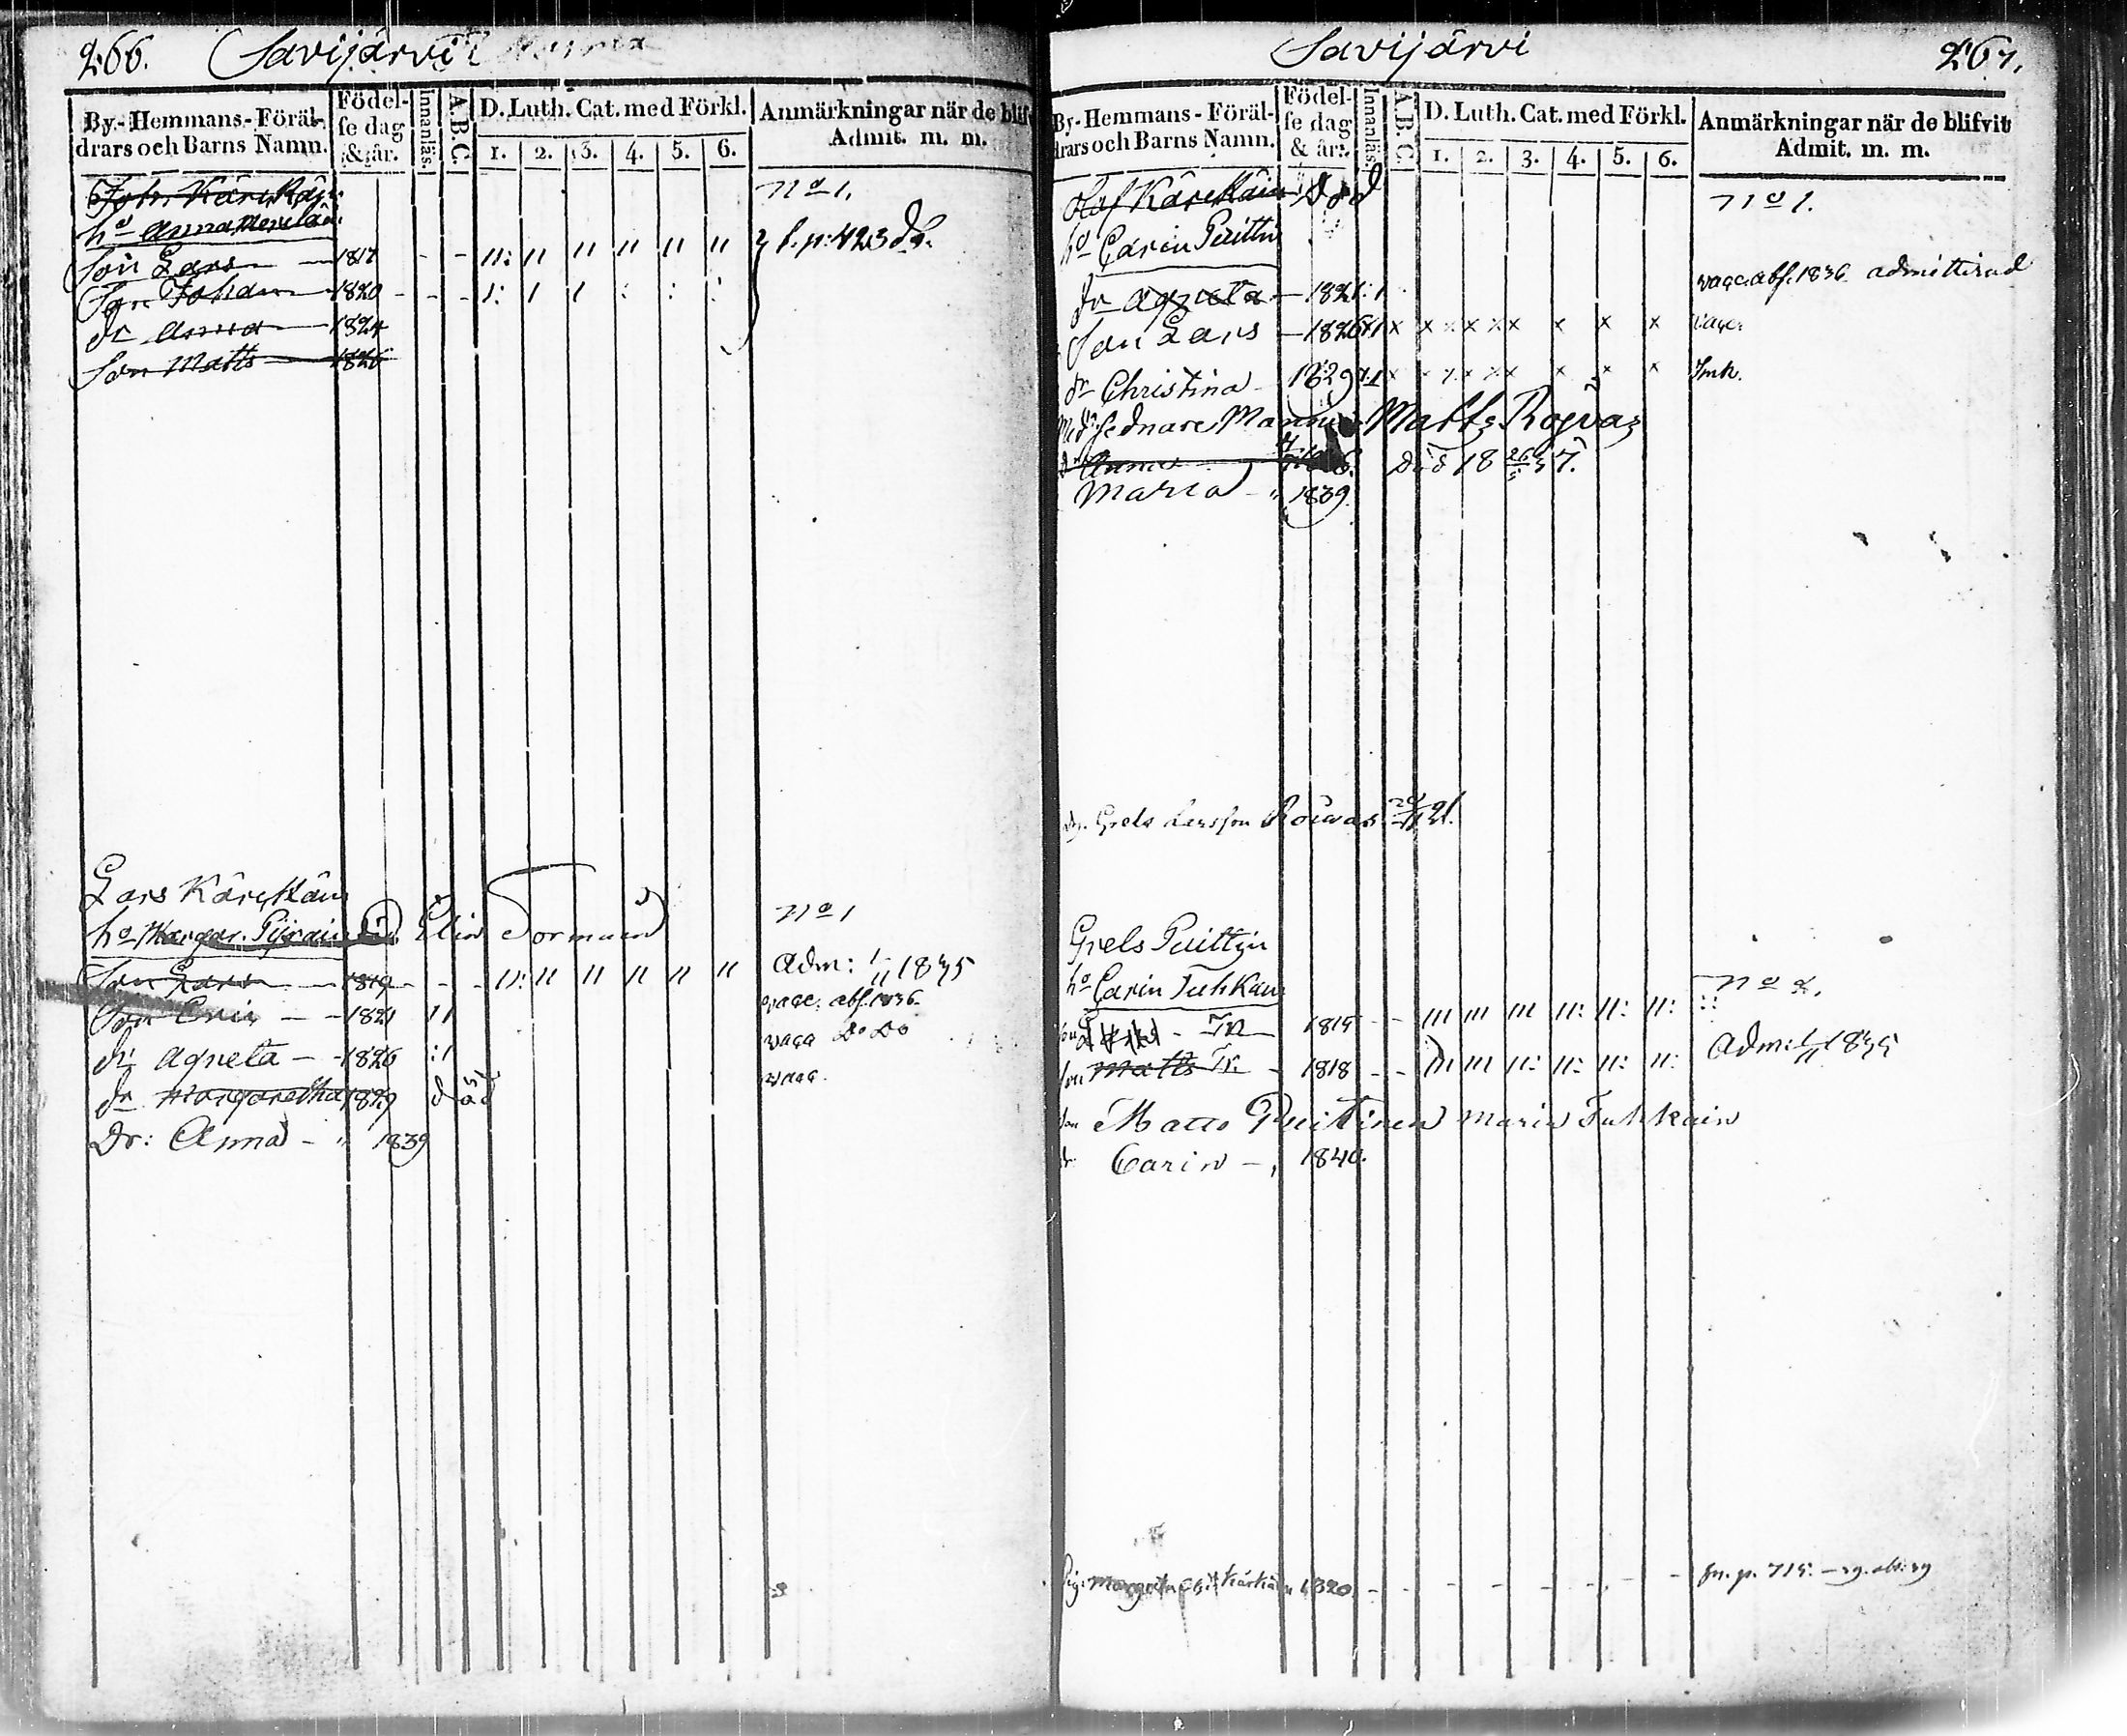 266. Savijärvi
By-Hemmans-Föräl-
drars och Barns Namn.
Födel-
se dag
& år.
Innanläs.
A.B.C.
D. Luth. Cat. med Förkl.
1. 2. 3. 4. 5. 6.
Anmärkningar när de blif
Admit. m. m.
Joh. Kärckäin No 1.
ho Anna
Son Lars 1817 - - 11: 11 11 11 11 11 f. p: 423
Son Johan 1820 - - - 1: 1 1 : : :
dr Anna 1824
Son Matts 1826
Lars Kärckäin No 1
ho Margar. Elin Tormain
Son Lars 1819 - - - 11: 11 11 11 11 11 Adm: 1/11 1835
Son Eric - 1821 11 vacc. abs. 1836.
dr Agneta - 1826 :1 vacc Do Do
dr Margaretha 1829 död vacc.
Dr: Anna - " 1839
Savijärvi 267.
By-Hemmans-Föräl-
drars och Barns Namn.
Födel-
se dag
& år.
Innanläs.
A.B.C.
D. Luth. Cat. med Förkl.
1. 2. 3. 4. 5. 6.
Anmärkningar när de blifvit
Admit. m. m.
Olof Kärckäin Död No 1.
ho Carin Puittin
dr Agneta - 1821 :1 vacc. abs. 1836 admitterad
Son Lars - 1826 x x x x x x x x x vacc.
dr Christina - 1829 x x x x x x x x
Sednare Matts Rojvas
Anna död 18 26/5 37.
Maria - " 1839
Grels Larsson Roivas
Grels Puittin
ho Carin Tuhkain No 2.
1815 - - 111 111 111 11: 11: 11: ::
Son Matts 1818 - - 111 111 11: 11: 11: 11: Adm: 1/11 1835
Son Matts Puittinen Maria Tuhkain
dr Carin - 1840.
1820. - - - - - - - - fr. p. 715.